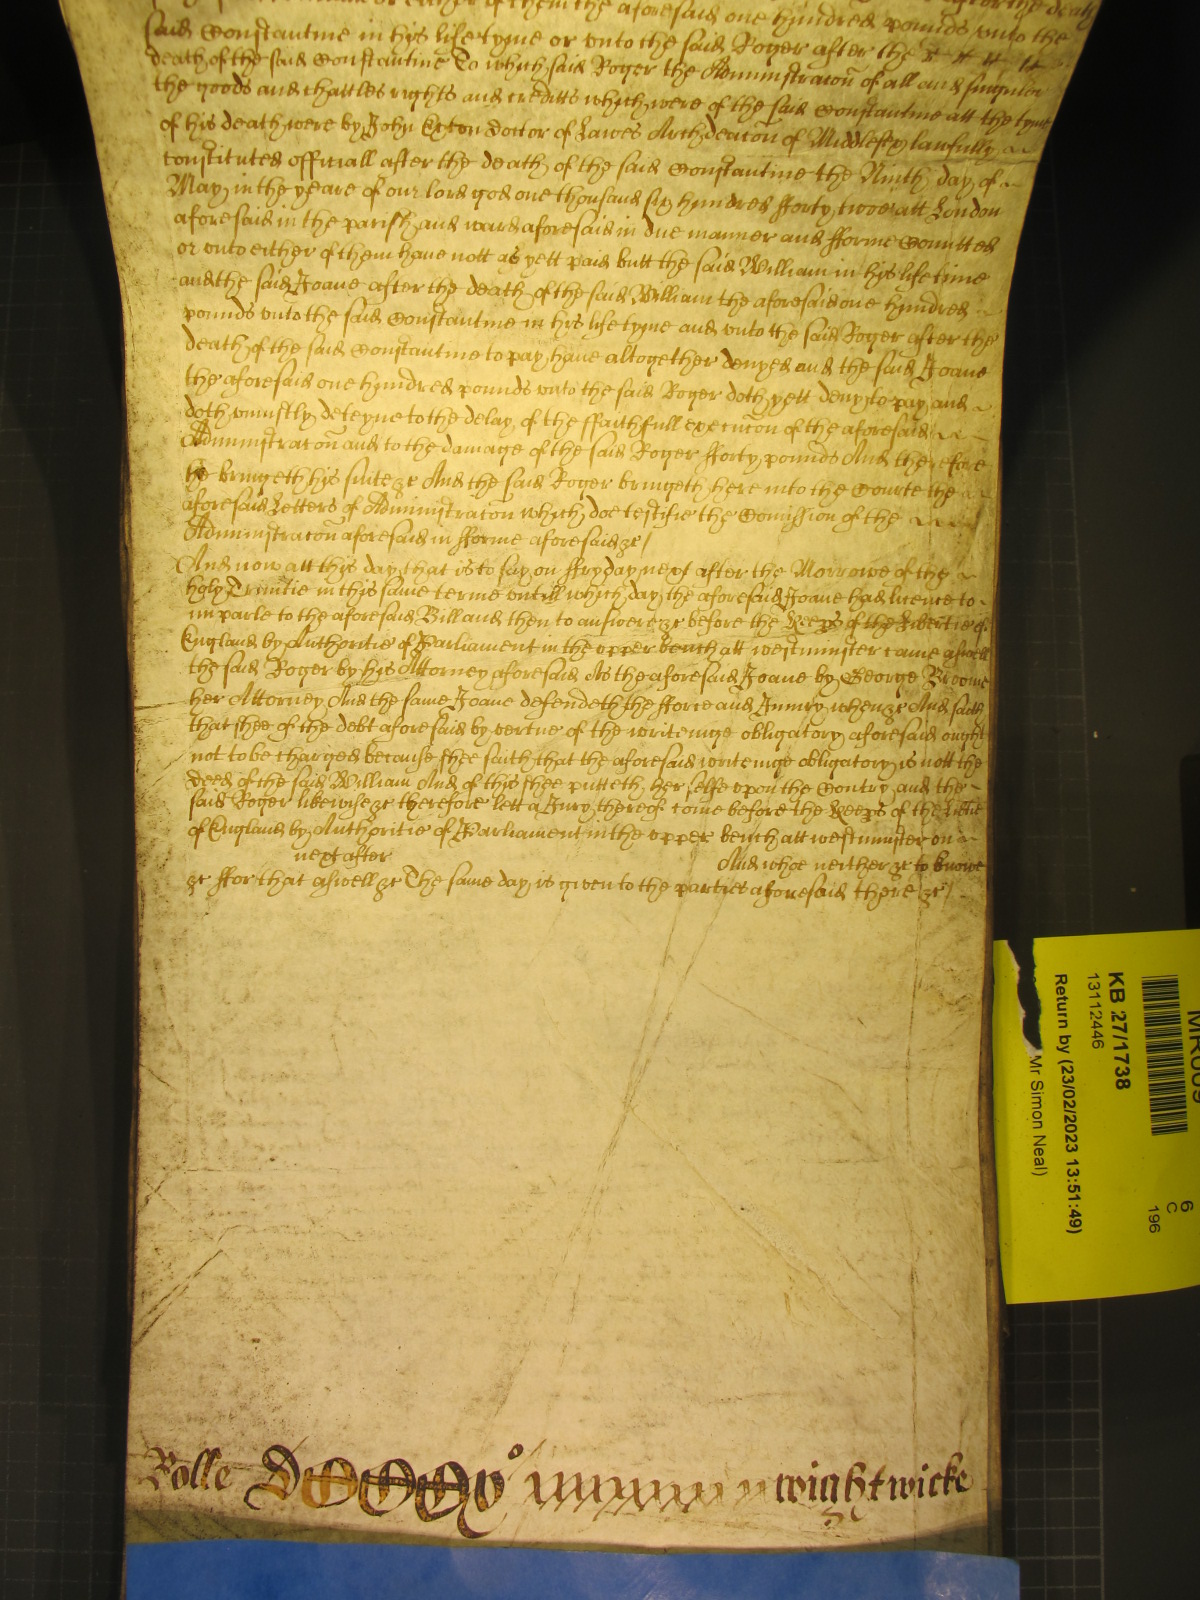 of them the aforesaid one hundred pounds unto the
said Constantine in his life tyme or unto the said Roger after the
death of the said Constantine To which said Roger the Administracon of all and singuler
the goods and chattles rights and creditts which were of the said Constantine att the tyme
of his death were by John Exton Doctor of Lawes Archdeacon of Middlesex lawfully
constituted officiall after the death of the said Constantine the Ninth day of
May in the yeare of our lord god one thousand six hundred fforty twoe att London
aforesaid in the parish and ward aforesaid in due manner and fforme Comitted
or unto either of them have nott as yett paid butt the said William in his life time
and the said Joane after the death of the said William the aforesaid one hundred
pounds unto the said Constantine in his life tyme and unto the said Roger after the
death of the said Constantine to pay have altogether denyed and the said Joane
the aforesaid one hundred pounds unto the said Roger doth yett deny to pay and
doth uniustly deteyne to the delay of the ffaithfull execucon of the aforesaid
Administracon and to the damage of the said Roger fforty pounds And therefore
he bringeth his suite &c And the said Roger bringeth here into the Courte the
aforesaid Letters of Administracon which doe testifie the Comission of the
Administracon aforesaid in fforme aforesaid &c
And now att this day that is to say on ffryday next after the Morrowe of the
holy Trinitie in this same terme untill which day the aforesaid Joane had licence to
imparle to the aforesaid Bill and then to answere &c before the Keeps of the Libertie of
England by Authoritie of Parliament in the upper bench att westminster came aswell
the said Roger by his Attorney aforesaid As the aforesaid Joane by George Broome
her Attorney And the same Joane defendeth the fforce and Iniury when &c And saith
that shee of the debt aforesaid by vertue of the writeinge obligatory aforesaid ought
not to be charged because shee saith that the aforesaid writeinge obligatory is nott the
deed of the said William And of this shee putteth her selfe upon the Contry and the
said Roger likewise &c therefore lett a Jury thereof come before the Keeps of the Libtie
of England by Authoritie of Parliament in the upper bench att westminster on
next after And whoe neither &c to knowe
&c ffor that aswell &c The same day is given to the parties aforesaid there &c
Rolle wightwicke
MR009
KB 27/1738
13112446
Return by (23/02/2023 13:51:49)
Mr Simon Neal)
6
C
196